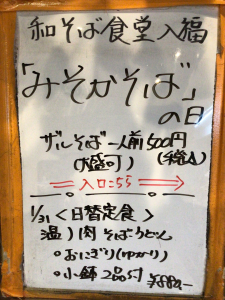 和そば食堂入福
「みそかそば」
の日
ザルそば一人前500円
(大盛可) (税込)
入口こちら
1/31<日替定食>
温)肉そばうどん
○おにぎり(ゆかり)
○小鉢2品付 ¥880-